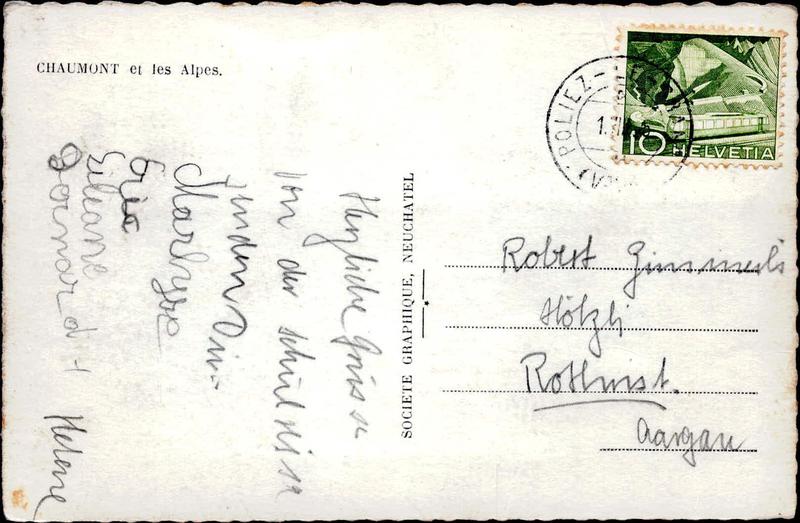 CHAUMONT et les Alpes.
Herzliche Grüsse
von der schulreise
senden Dir
Marlyse
Eric
Liliane
Bernard + Helene
SOCIETE GRAPHIQUE, NEUCHATEL
POLIEZ-
10 HELVETIA
Robert
Hölzli
Rothrist.
Aargau